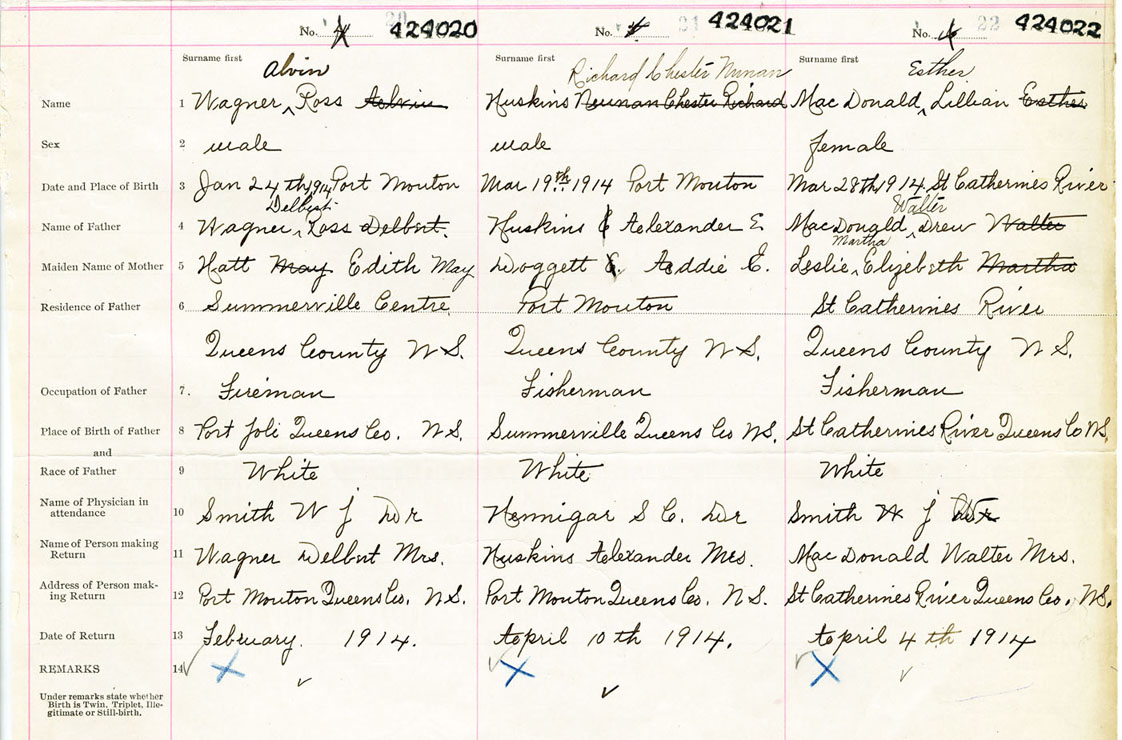 No. 20 424020 No. 21 424021 No. 22 424022
Surname first Surname first Surname first
Alvin Richard Chester Nunan Esther
Name 1 Wagner ‸ Ross Alvin Huskins Neunan Chester Richard Mac Donald ‸ Lillian Esther
Sex 2 male male female
Date and Place of Birth 3 Jan 24th, 1914 Port Mouton Mar 19th 1914 Port Mouton Mar 28th, 1914, St Catherines River
Delbert Walter
Name of Father 4 Wagner ‸ Ross Delbert. Huskins Alexander E MacDonald ‸ Drew Walter
Martha
Maiden Name of Mother 5 Hatt May Edith May Doggett E. Addie E. Leslie ‸ Elizebeth Martha
Residence of Father 6 Summerville Centre Port Mouton St Catherines River
Queens County N S. Queens County N S. Queens County N S.
Occupation of Father 7. Fireman Fisherman Fisherman
Place of Birth of Father 8 Port Joli Queens Co. N S. Summerville Queens Co NS. St Catherines River Queens Co NS.
and
Race of Father 9 White White White
Name of Physician in
attendance 10 Smith W J Dr Hennigar S C. Dr Smith W J Dr
Name of Person making
Return 11 Wagner Delbert Mrs. Huskins Alexander Mrs. Mac Donald Walter Mrs.
Address of Person mak-
ing Return 12 Port Mouton Queens Co. N S. Port Mouton Queens Co. N S. St Catherines River Queens Co. NS.
Date of Return 13 February. 1914. April 10th 1914. April 4th 1914
REMARKS 14
Under remarks state whether
Birth is Twin, Triplet, Ille-
gitimate or Still-birth.